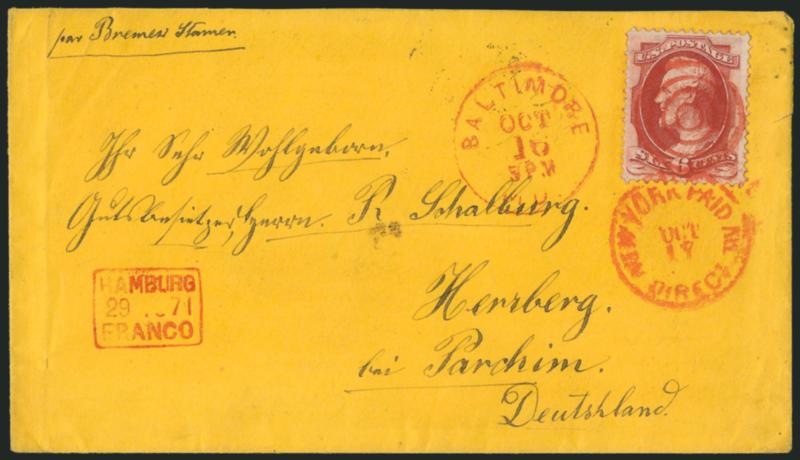 par Bremer Stamer.
U.S. POSTAGE
SIX 6 CENTS
BALTIMORE
OCT
16
5 P.M
MD.
NEW YORK PAID ALL
DIRECT
OCT
17
Ihr Sehr Wohlgeborn.
Gutsbesitzer, Herrn. P. Schalburg.
HAMBURG
29 71
FRANCO
Herzberg.
bei Parchim.
Deutshland.